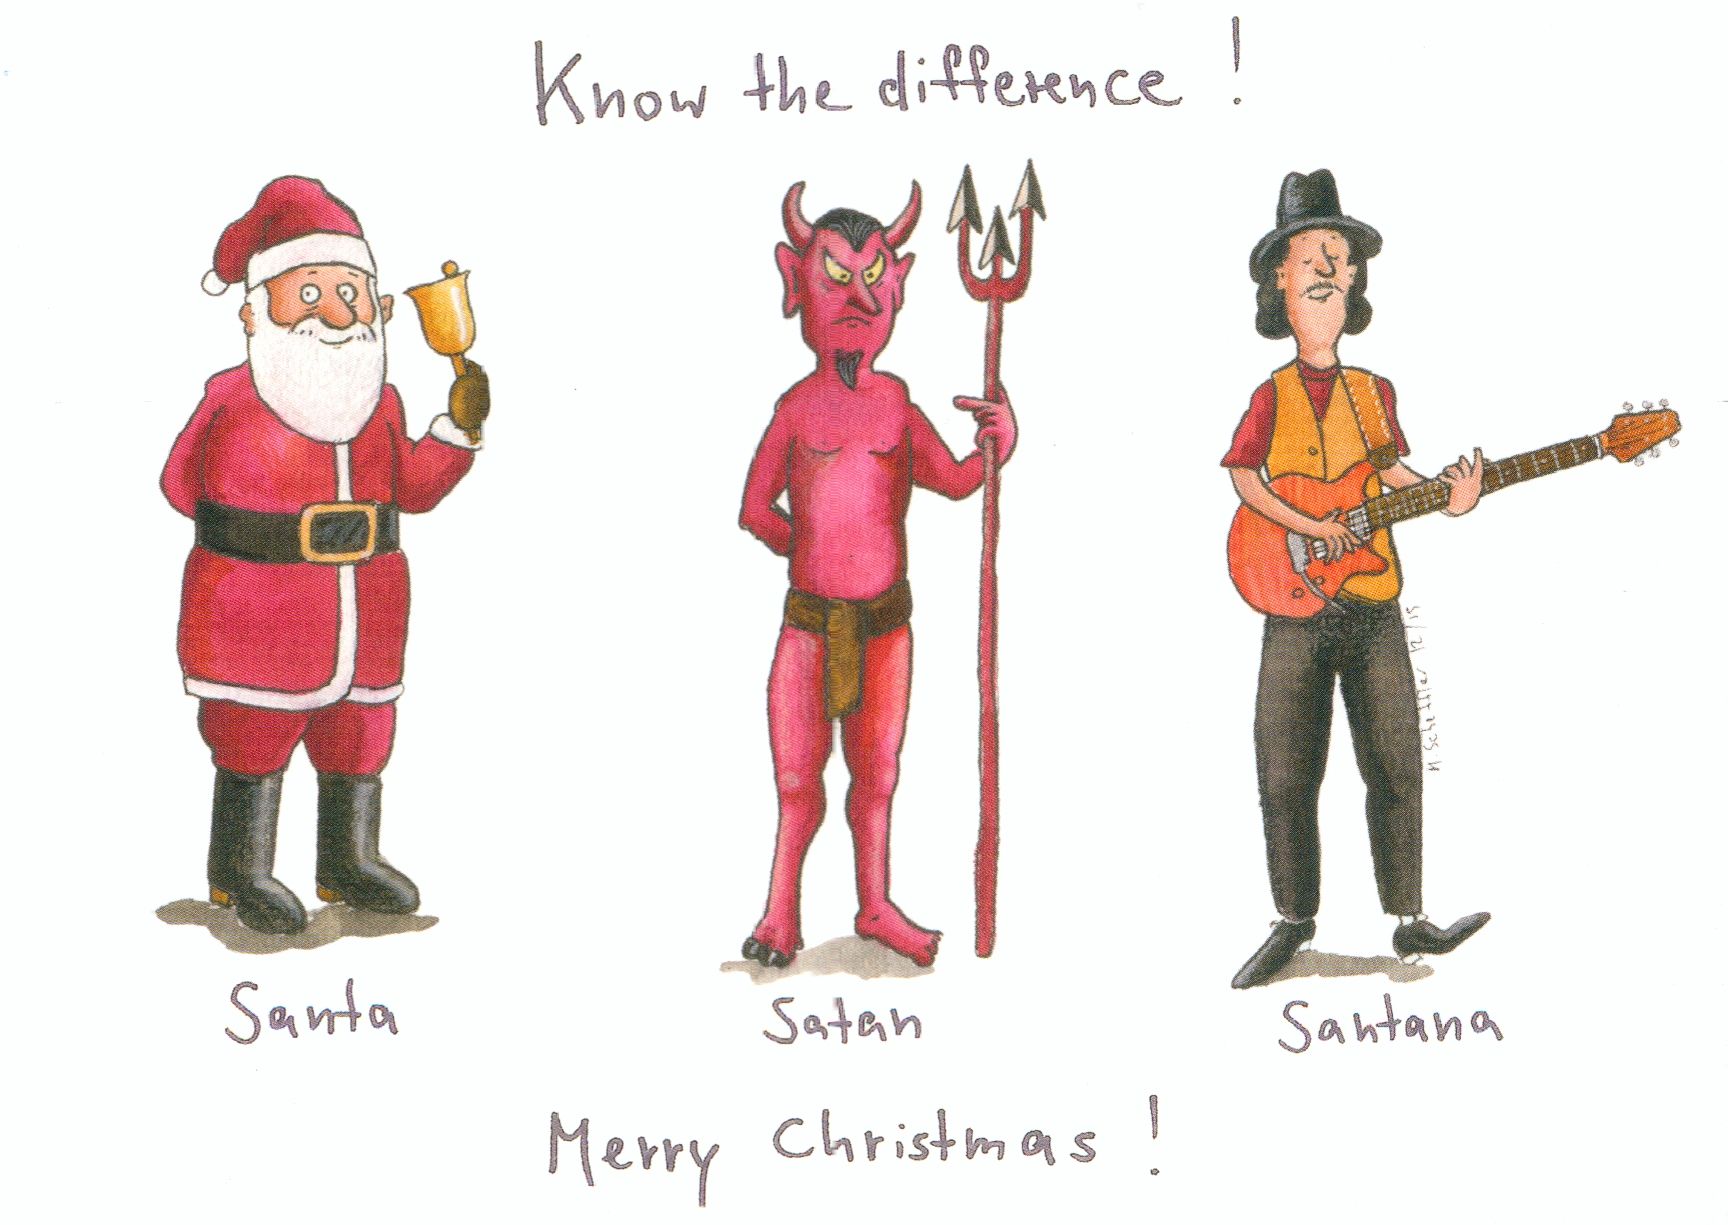 Know the difference !
Santa
Satan
Santana
M. Scheffler 12/15
Merry Christmas !